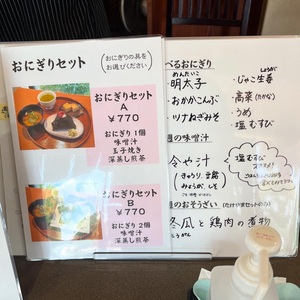 おにぎりセット
(おにぎりの具を
お選びください)
おにぎりセット
A
¥770
おにぎり1個
味噌汁
玉子焼き
深蒸し煎茶
おにぎりセット
B
¥770
おにぎり2個
味噌汁
深蒸し煎茶
べるおにぎり
めんたいこ
明太子
・おかかこんぶ
・ツナねぎみそ
しょうが
・じゃこ生姜
・高菜(たかな)
・うめ
・塩むすび
の味噌汁
冷や汁
きゅうり 豆腐
みょうが しそ
塩むすび
のおそうざい
冬瓜と鶏肉の煮物
とうがん